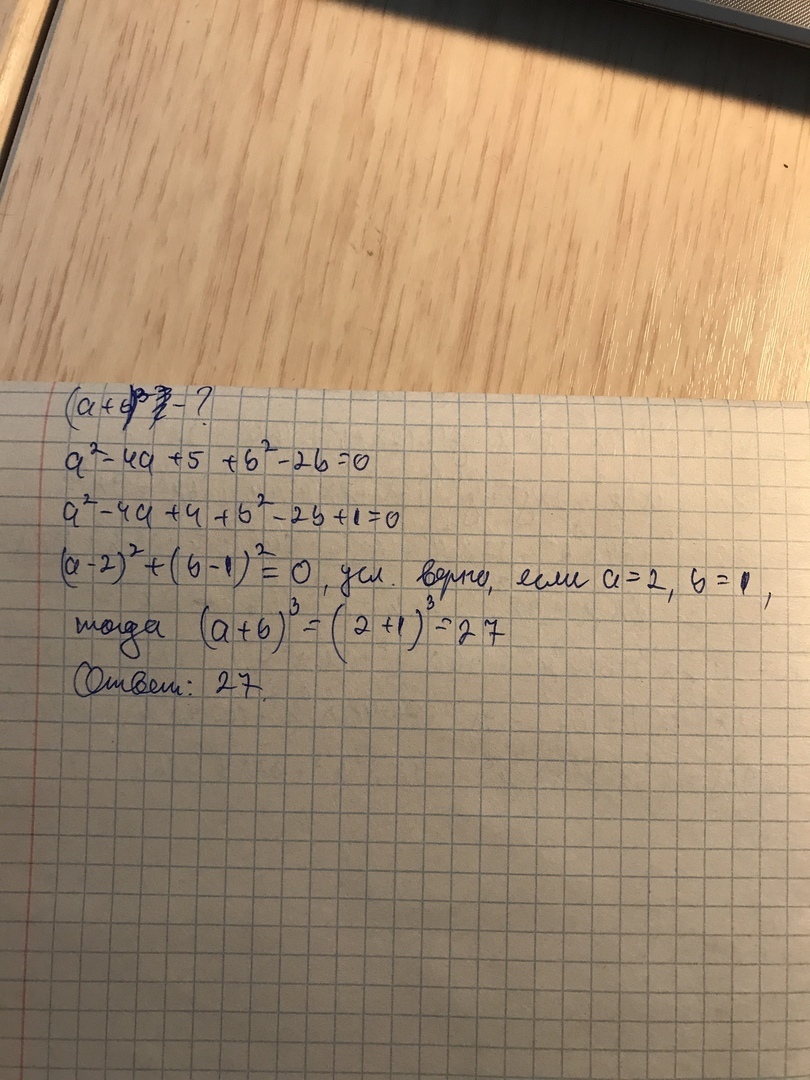 (a+b)³ - ?
a² - 4a + 5 + b² - 2b = 0
a² - 4a + 4 + b² - 2b + 1 = 0
(a - 2)² + (b - 1)² = 0, усл. верно, если a = 2, b = 1,
тогда (a + b)³ = (2 + 1)³ = 27
Ответ: 27.